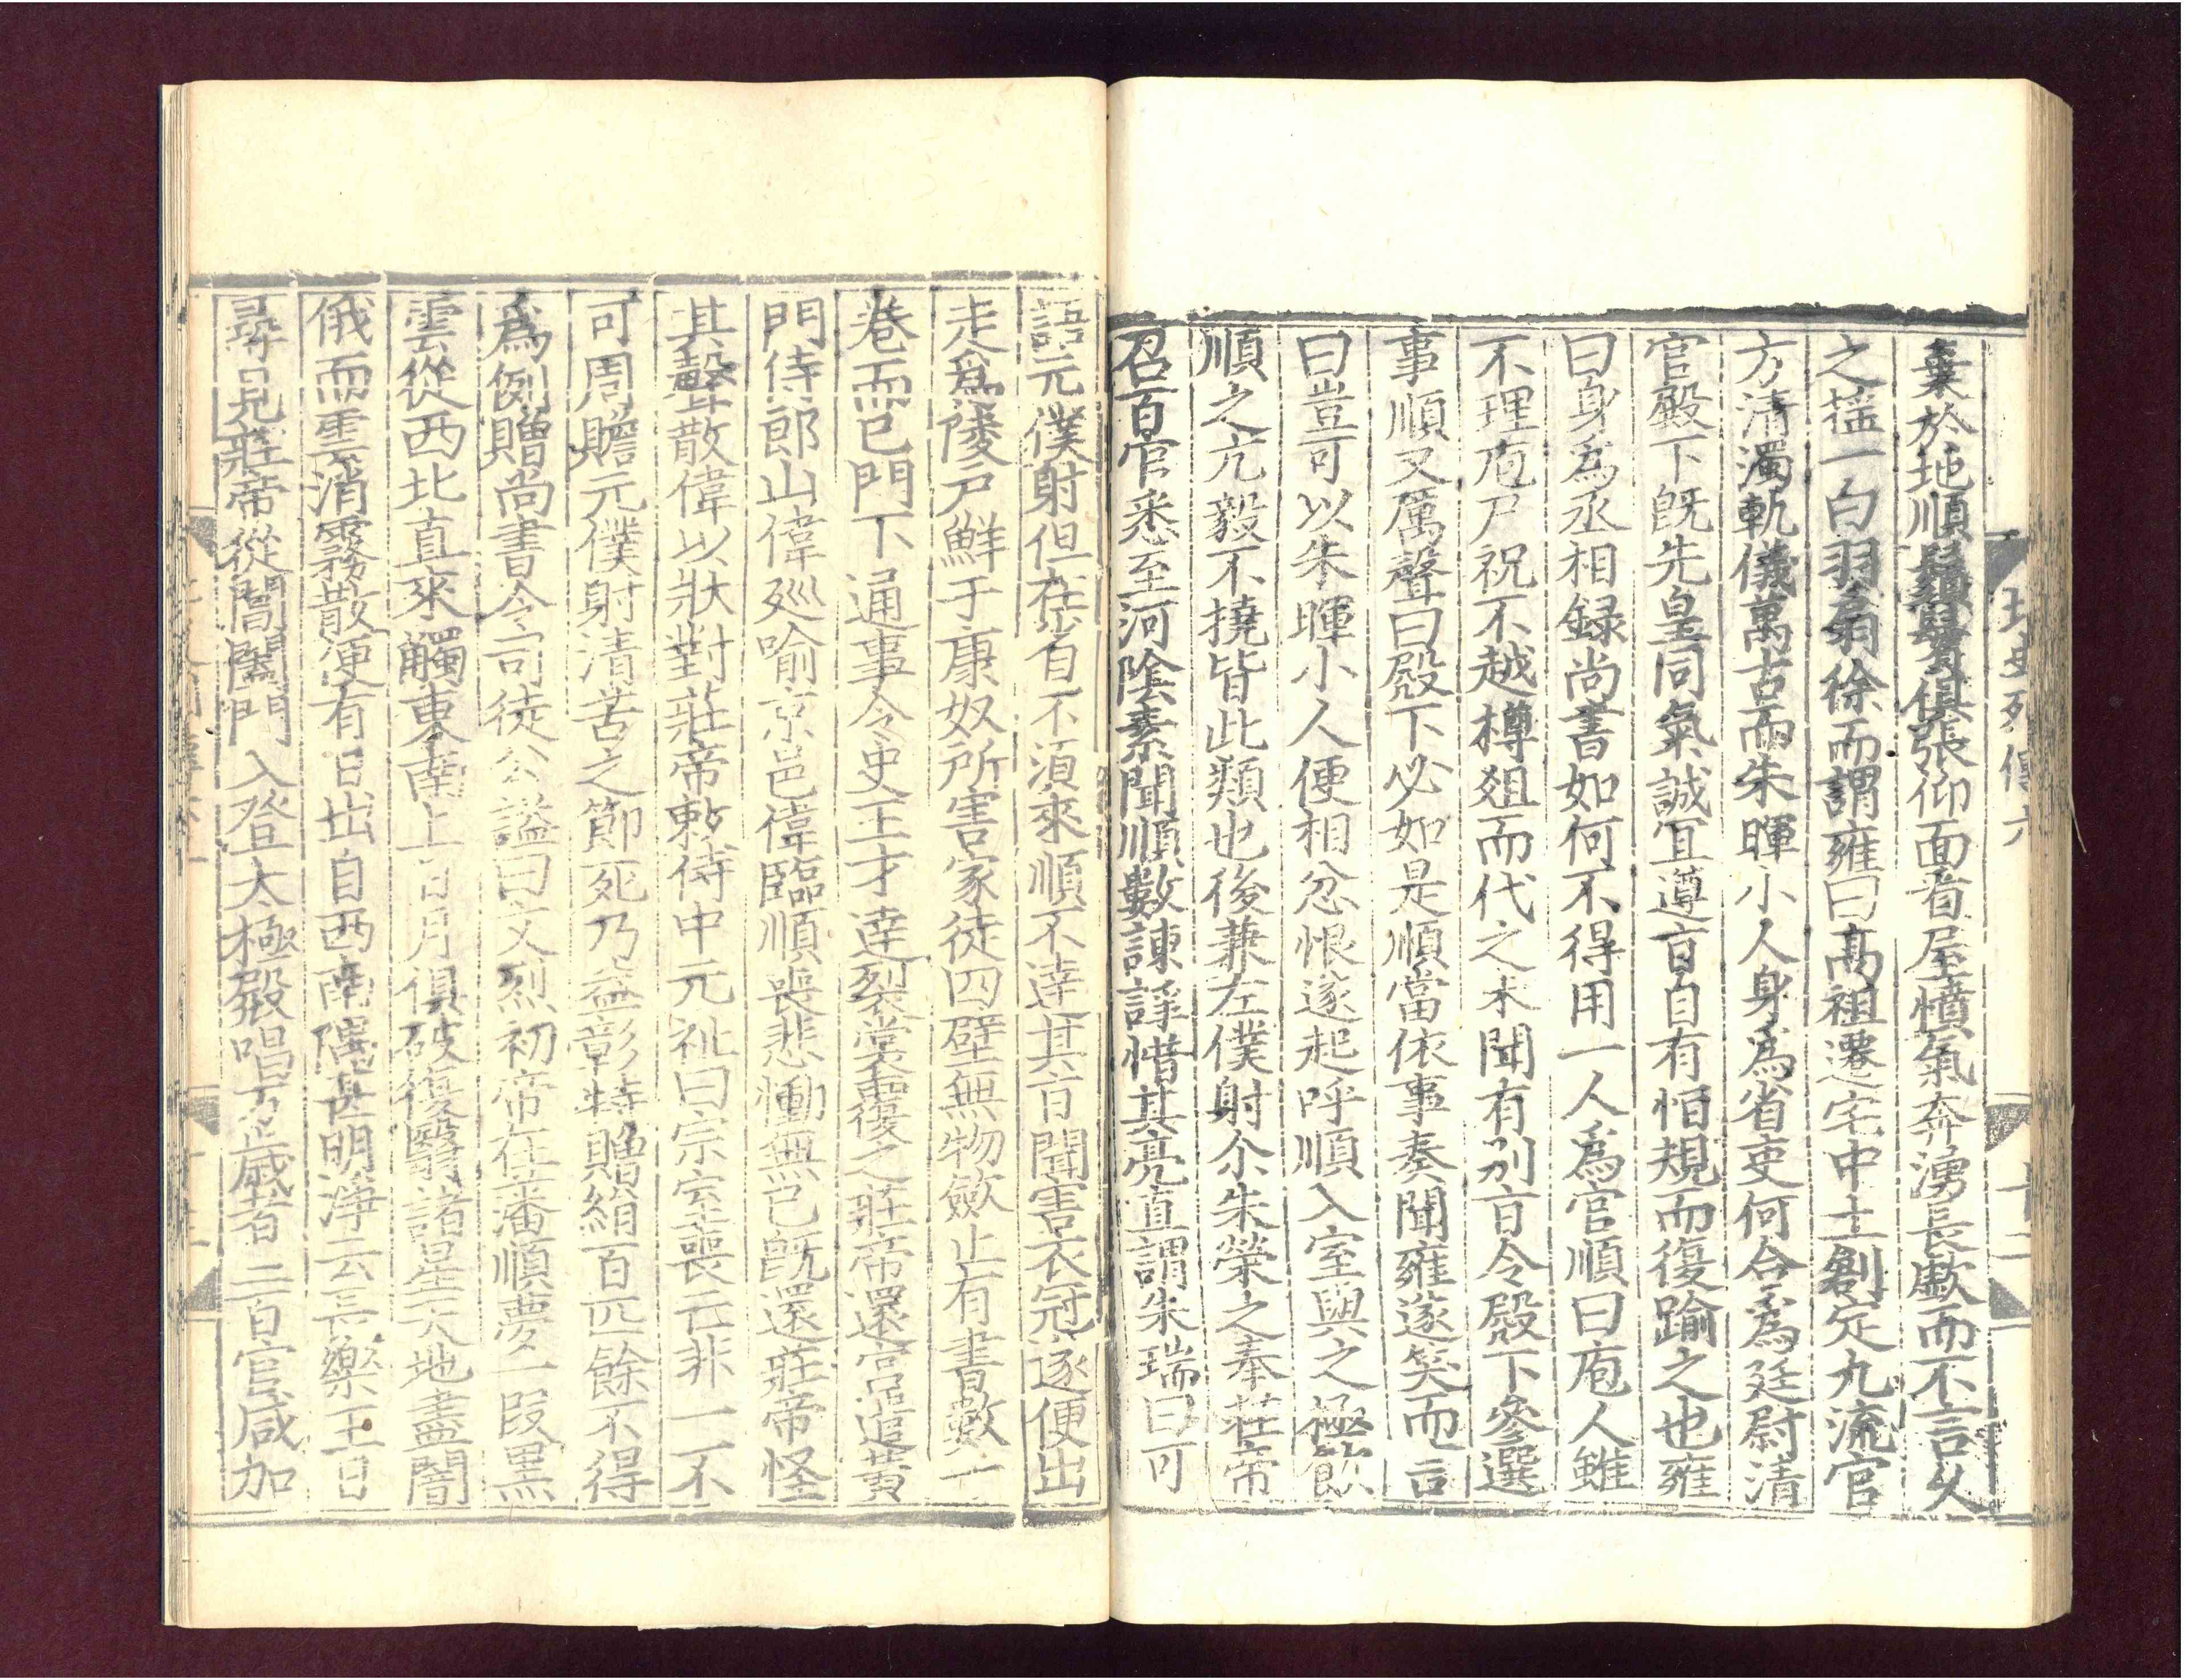 北史列傳六
十二
棄於地順鬚鬢俱張仰面看屋憤氣奔湧長歔而不言久
之搖一白羽扇徐而謂雍曰高祖遷宅中土創定九流官
方清濁軌儀萬古而朱暉小人身爲省吏何合爲廷尉清
官殿下旣先皇同氣誠宜遵旨自有恒規而復踰之也雍
曰身爲丞相録尚書如何不得用一人爲官順曰庖人雖
不理庖尸祝不越樽俎而代之未聞有別旨令殿下參選
事順又厲聲曰殿下必如是順當依事奏聞雍遂笑而言
曰豈可以朱暉小人便相忿恨遂起呼順入室與之極飲
順之亢毅不撓皆此類也後兼左僕射尒朱榮之奉莊帝
召百官悉至河陰素聞順數諫諍惜其亮直謂朱瑞曰可
語元僕射但在省不須來順不達其旨聞害衣冠遂便出
走爲陵戸鮮于康奴所害家徒四壁無物斂止有書數千
卷而已門下通事令史王才達裂裳覆之莊帝還宫遣黄
門侍郎山偉巡喻京邑偉臨順喪悲慟無已旣還莊帝怪
其聲散偉以狀對莊帝敕侍中元祉曰宗室喪亡非一不
可周贍元僕射清苦之節死乃益彰特贈絹百匹餘不得
爲例贈尚書令司徒公謚曰文烈初帝在藩順夢一段黒
雲從西北直來觸東南上日月俱破復翳諸星天地盡闇
俄而雲消霧散便有日出自西南隅甚明淨云長樂王日
尋見莊帝從閶闔門入登太極殿唱万歳者三百官咸加